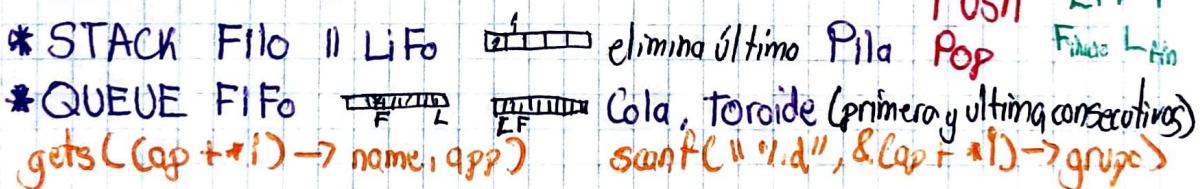 PUSH
* STACK FIlo || LiFo elimina último Pila Pop
* QUEUE FIFo F L LF Cola, toroide (primera y ultima consecutivas)
gets((ap + *i) -> name, app) scanf("%d", &(ap + *i) -> grupo)